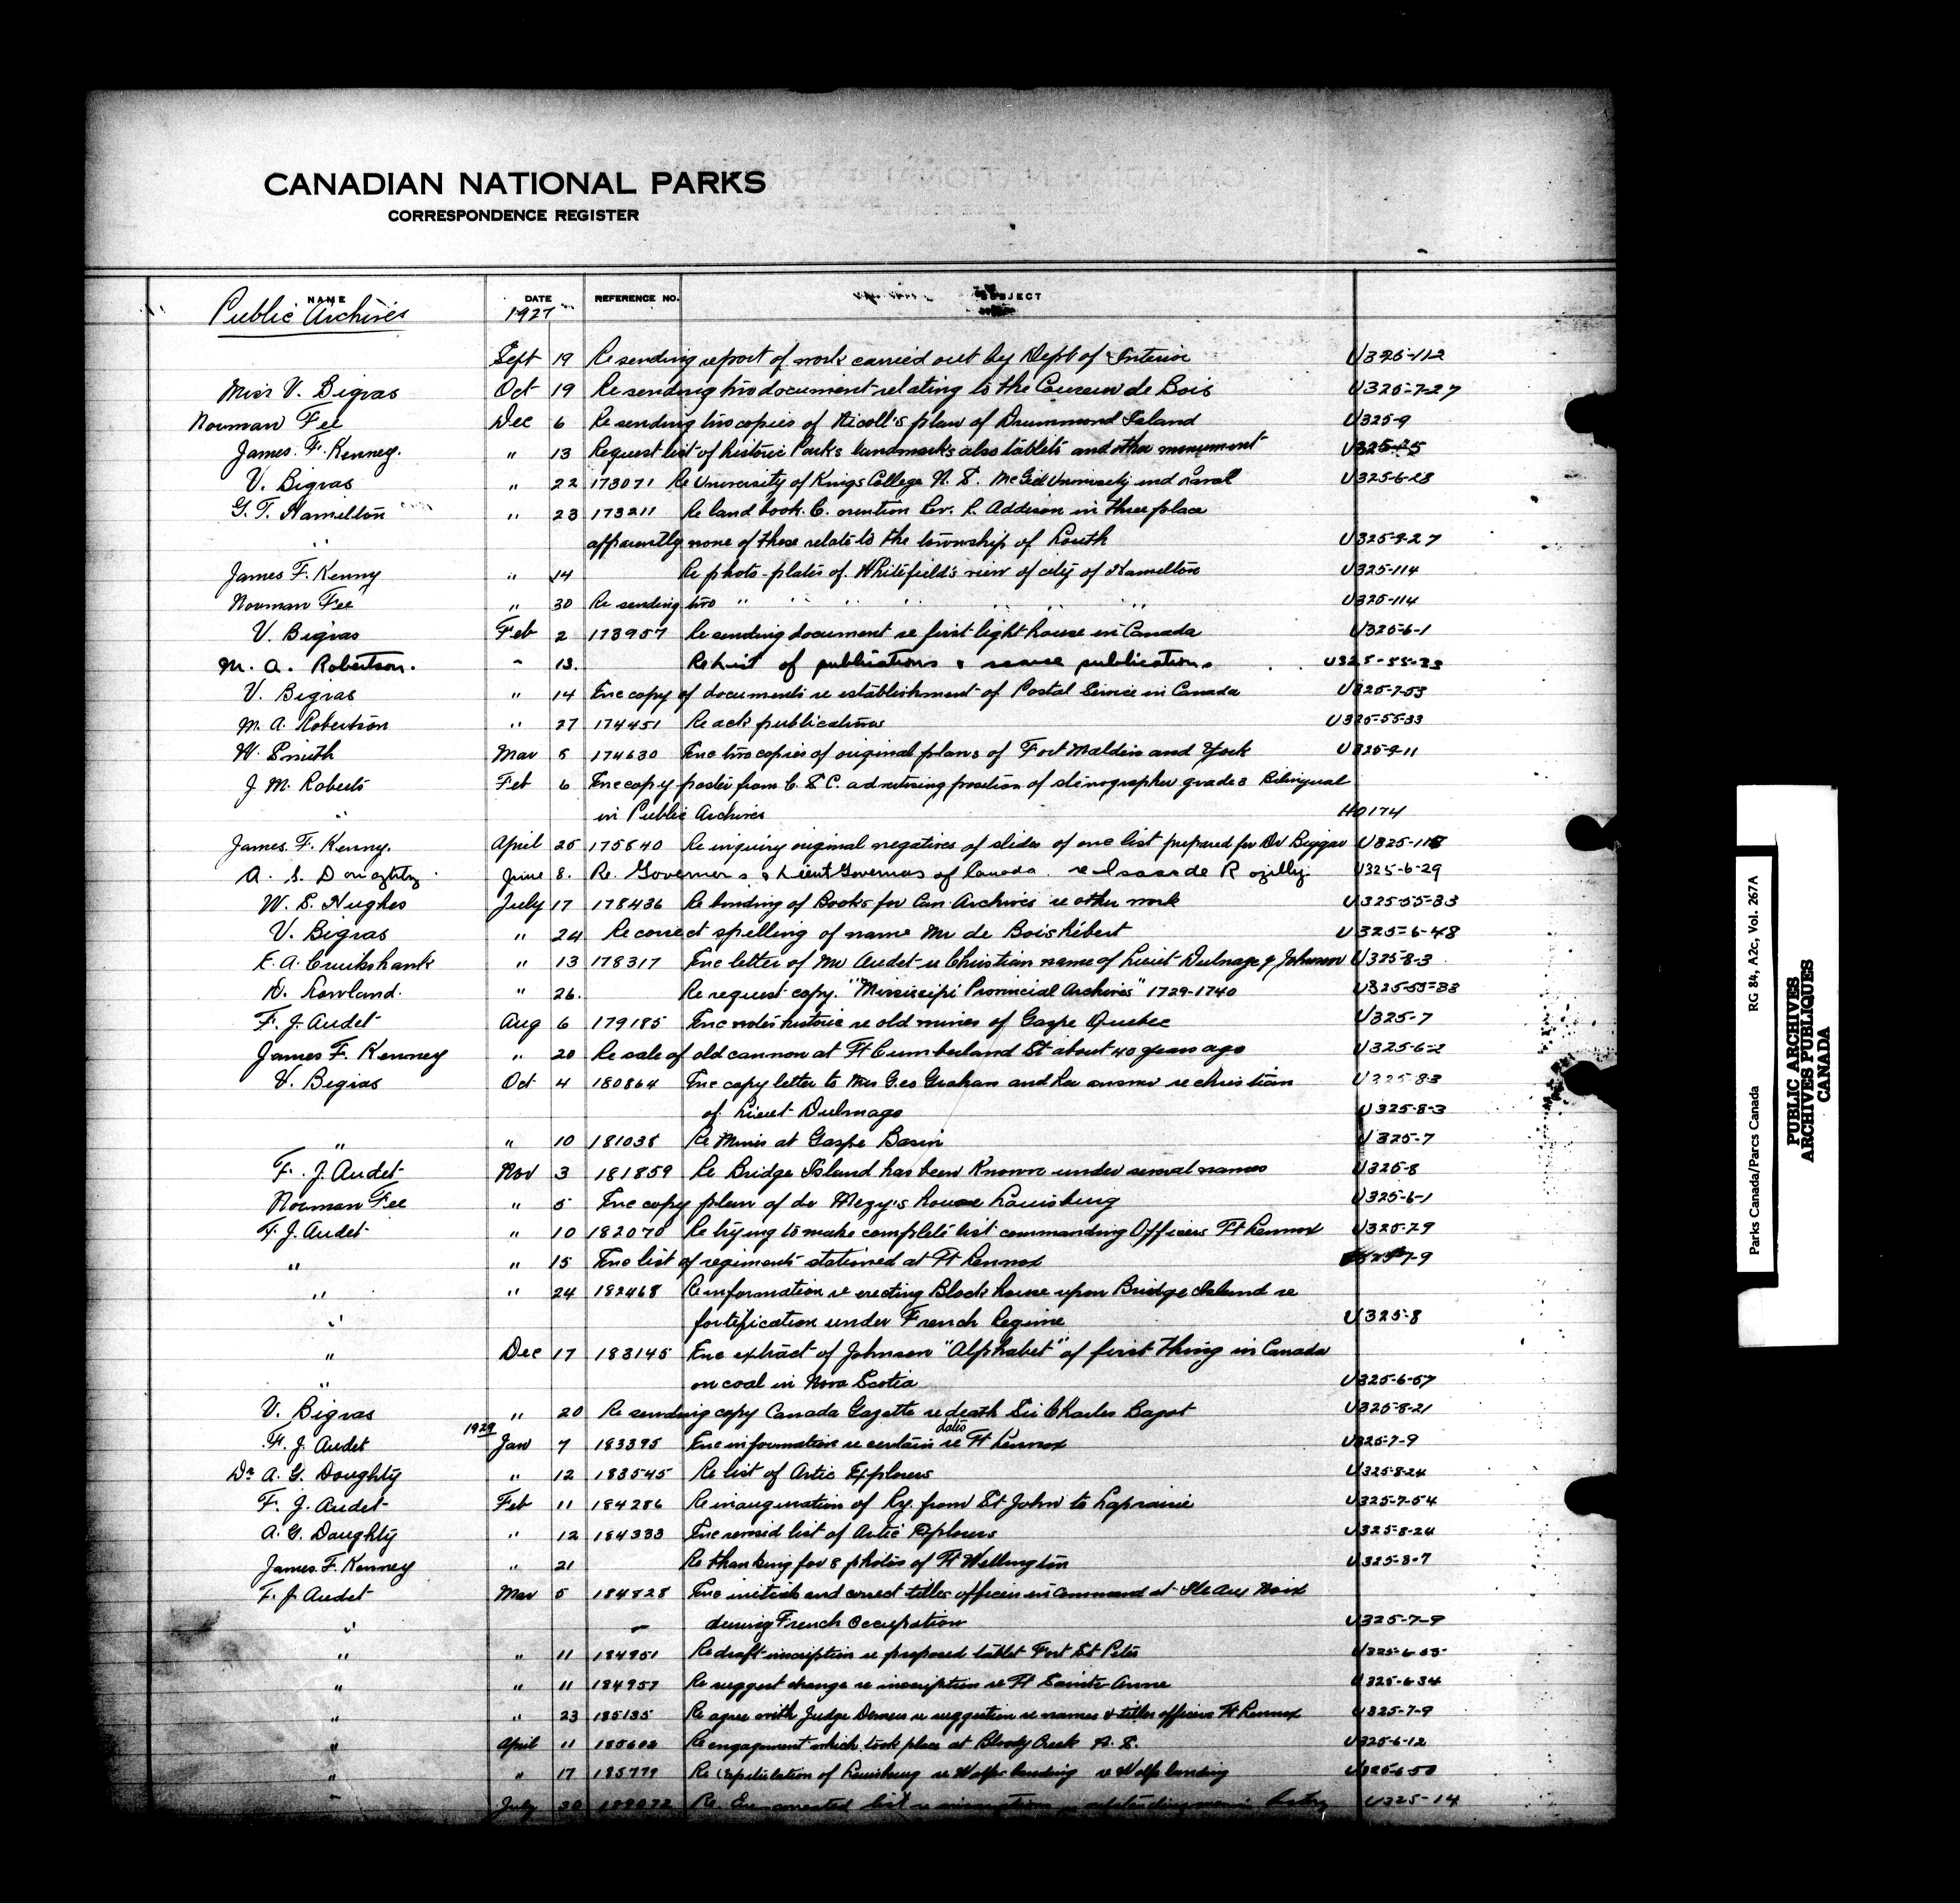 CANADIAN NATIONAL PARKS
CORRESPONDENCE REGISTER
NAME DATE REFERENCE NO. SUBJECT
Public Archives 1927
Sept 19 Re sending report of work carried out by Dept of Interior U325-112
Miss V. Bigras Oct 19 Re sending two document relating to the Coureur de Bois U325-7-27
Norman Fee Dec 6 Re sending two copies of Nicoll's plan of Drummond Island U325-9
James. F. Kenney. " 13 Request list of historic Parks landmarks also tablets and other monument U325-25
V. Bigras " 22 173071 Re University of Kings College N. S. McGill University and Laval U325-6-28
G. T. Hamilton " 23 173211 Re land book. C. mention Rev. R. Addison in three place
" apparently none of these relate to the township of Louth U325-9-27
James F. Kenny " 14 Re photo-plates of Whitefield's view of city of Hamilton U325-114
Norman Fee " 30 Re sending two " " " " " " " U325-114
V. Bigras Feb 2 173957 Re sending document re first light house in Canada U325-6-1
M. A. Robertson. " 13. Re List of publications & publications U325-55-33
V. Bigras " 14 Enc copy of documents re establishment of Postal Service in Canada U325-7-53
M. A. Robertson " 27 174451 Re ack publications U325-55-33
W. Smith Mar 5 174630 Enc two copies of original plans of Fort Malden and York U325-9-11
J. M. Roberts Feb 6 Enc copy poster from C. S. C. advertising position of stenographer grade 3 Bilingual
" in Public Archives H0174
James. F. Kenny. April 25 175840 Re inquiry original negatives of slides of one list prepared for Dr Biggar U325-118
A. S. Doughty June 8. Re. Governers & Lieut Governors of Canada. re Isaac de Rozilly. U325-6-29
W. S. Hughes July 17 178436 Re binding of Books for Can. Archives re other work U325-55-33
V. Bigras " 24 Re correct spelling of name Mr de Boishébert U325-6-48
E. A. Cruikshank " 13 178317 Enc letter of Mr Audet re Christian name of Lieut Dulmage & Johnson U325-8-3
D. Rowland. " 26. Re request copy. "Mississipi Provincial Archives" 1729-1740 U325-55-33
F. J. Audet Aug 6 179185 Enc notes historic re old mines of Gaspe Quebec U325-7
James F. Kenney " 20 Re sale of old cannon at Ft Cumberland St about 40 years ago U325-6-2
V. Bigras Oct 4 180864 Enc copy letter to Mrs Geo Graham and her answer re christian U325-8-3
of Lieut Dulmage U325-8-3
" " 10 181038 Re Mines at Gaspe Basin U325-7
F. J. Audet Nov 3 181859 Re Bridge Island has been Known under several names U325-8
Norman Fee " 5 Enc copy plan of de Mezy's house Louisburg U325-6-1
F. J. Audet " 10 182070 Re trying to make complete list commanding Officers Ft Lennox U325-7-9
" " 15 Enc list of regiments stationed at Ft Lennox U325-7-9
" " 24 182468 Re information re erecting Block house upon Bridge Island re
" fortification under French Regime U325-8
" Dec 17 183145 Enc extract of Johnson "Alphabet" of first thing in Canada
" on coal in Nova Scotia U325-6-57
V. Bigras " 20 Re sending copy Canada Gazette re death Sir Charles Bagot U325-8-21
1929
F. J. Audet Jan 7 183395 Enc information re certain dates re Ft Lennox U325-7-9
Dr A. G. Doughty " 12 183545 Re list of Artic Explorers U325-8-24
F. J. Audet Feb 11 184286 Re inauguration of Ry. from St John to Laprairie U325-7-54
A. G. Doughty " 12 184333 Enc revised list of Artic Explorers U325-8-24
James. F. Kenney " 21 Re thanking for 8 photos of Ft Wellington U325-8-7
F. J. Audet Mar 5 184828 Enc initials and correct titles officers in Command at Ile Aux Noix
" during French Occupation U325-7-9
" " 11 184951 Re draft inscription re proposed tablet Fort St Peter U325-6-55
" " 11 184957 Re suggest change re inscription re Ft Sainte Anne U325-6-34
" " 23 185135 Re agree with Judge Demers re suggestion re names & titles officers Ft Lennox U325-7-9
" April 11 185602 Re engagement which took place at Bloody Creek N. S. U325-6-12
" " 17 185779 Re Capitulation of Louisburg re Wolfe landing re Wolfe landing U325-6-50
" July 30 189072 Re. Enc corrected list re U325-14
Parks Canada/Parcs Canada RG 84, A2c, Vol. 267A
PUBLIC ARCHIVES
ARCHIVES PUBLIQUES
CANADA